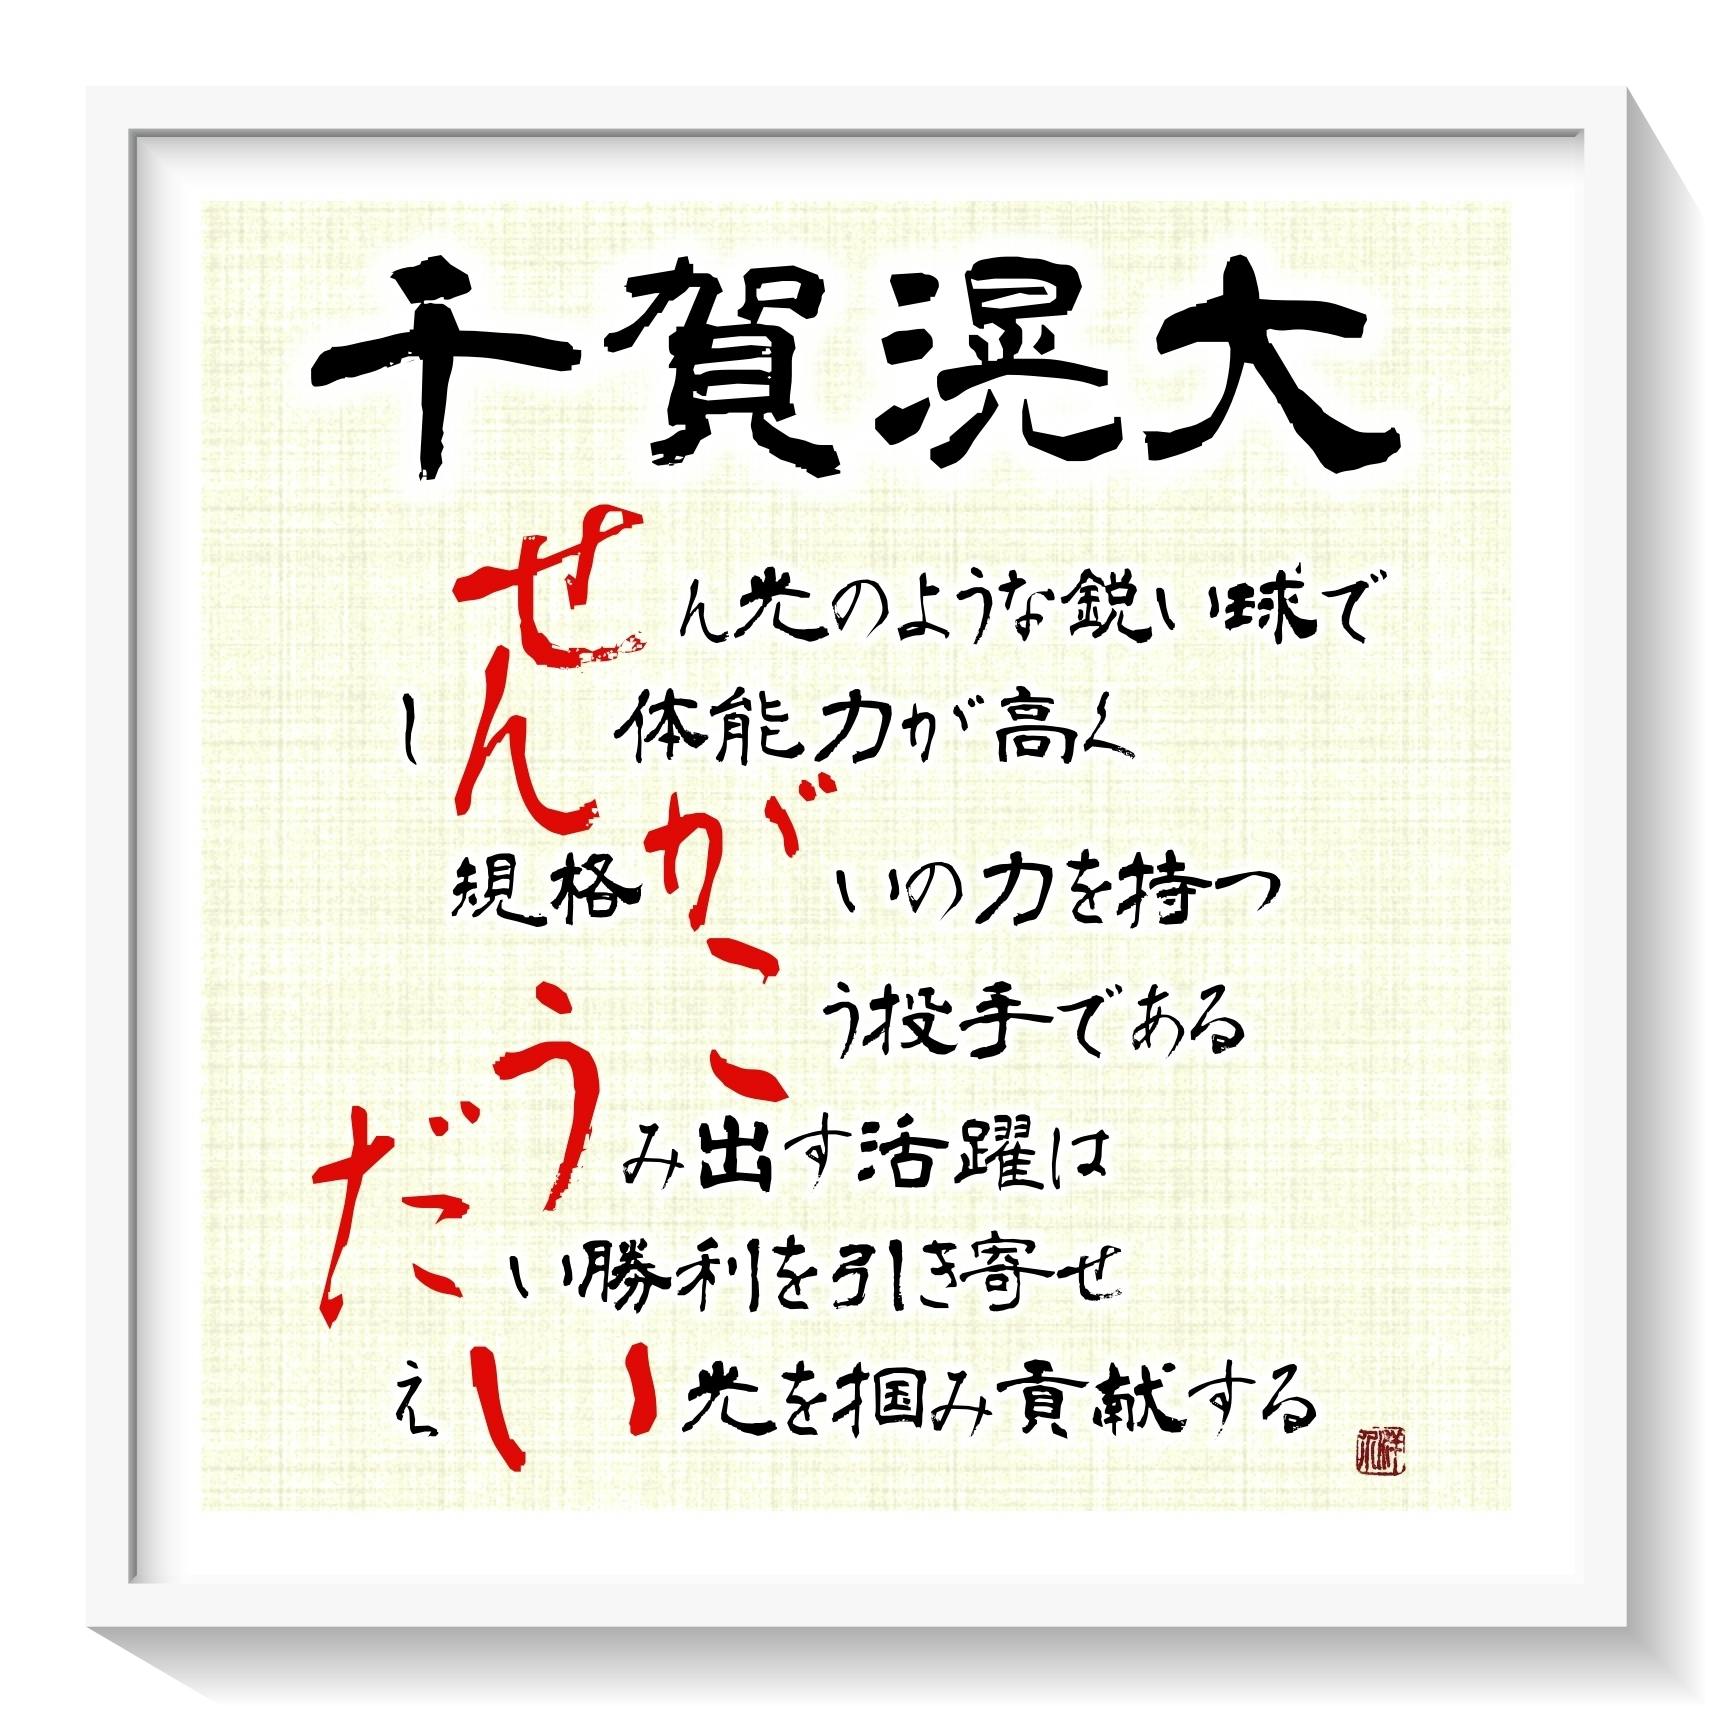 千賀滉大
せん光のような鋭い球で
しん体能力が高く
規格がいの力を持つ
こう投手である
うみ出す活躍は
だい勝利を引き寄せ
えい光を掴み貢献する